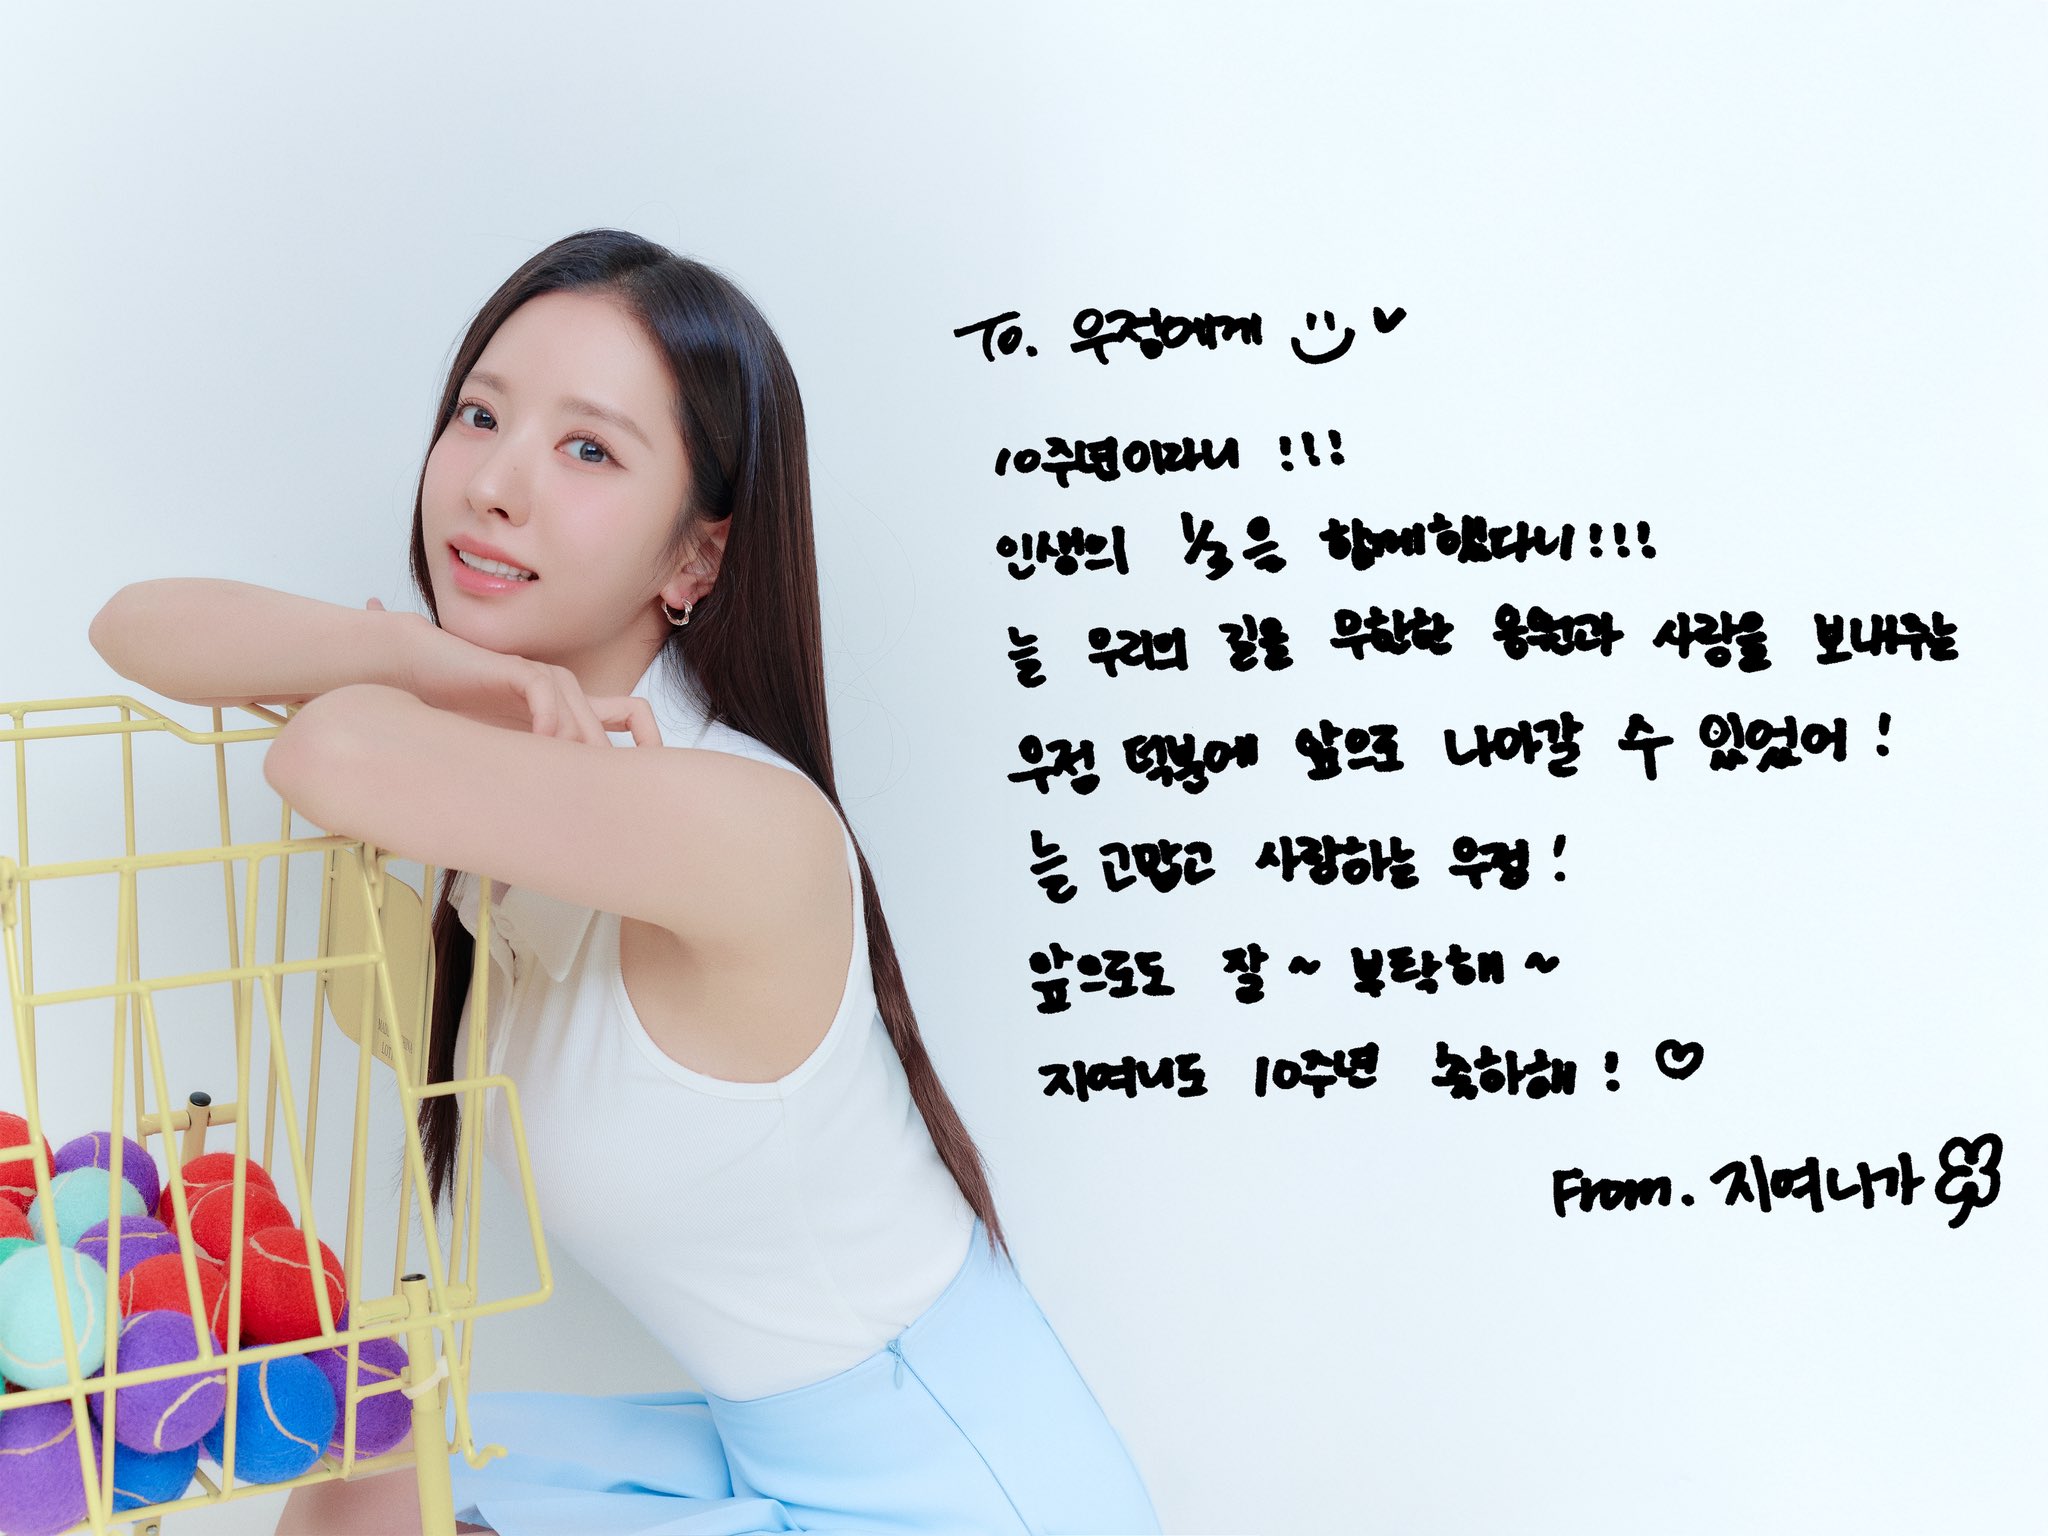 To. 우정에게
10주년이라니 !!!
인생의 1/3은 함께했다니!!!
늘 우리의 길을 무한한 응원과 사랑을 보내주는
우정 덕분에 앞으로 나아갈 수 있었어!
늘 고맙고 사랑하는 우정!
앞으로도 잘~ 부탁해~
지여니도 10주년 축하해!
From. 지여니가
MADE CHINA